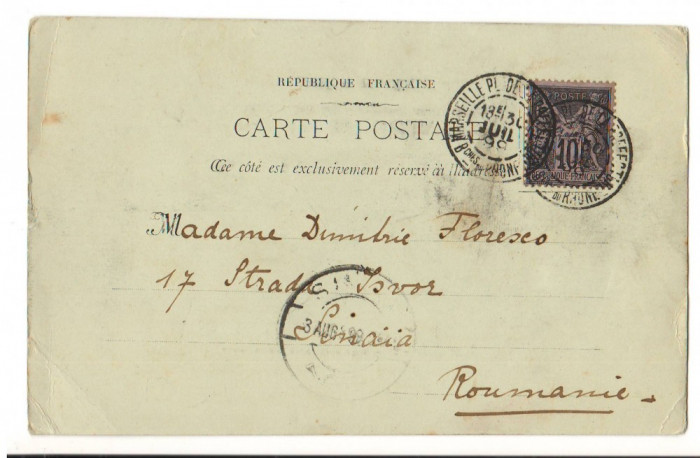 RÉPUBLIQUE FRANÇAISE
CARTE POSTALE
Ce côté est exclusivement réservé à l'adresse
MARSEILLE PL. DE
18E 30
JUIL
98
BCHES DU RHONE
POSTE
10
REPUBLIQUE FRANÇAISE
DU RHONE
Madame Dimitrie Floresco
17 Strada Isvor
Sinaïa
3 AUG
Roumanie